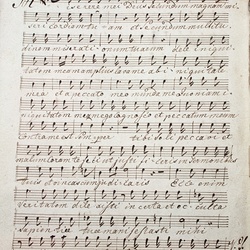 iserere mei Deus secundum magnam mi
sericordiam tuam et secundum multitu
dinem miserationum tuarum dele iniqui
tatem meam amplius lava me ab iniquitate
mea et a peccato meo munda me Quoniam
iniquitatem meam ego cognosco et peccatum meum
contra me est semper tibi soli peccavi et
malum coram te feci ut justificeris in sermonibus
tuis et vincas cum judicaris Ecce enim
veritatem dilexisti incerta et occulta
sapientiae tuae manifestasti mihi